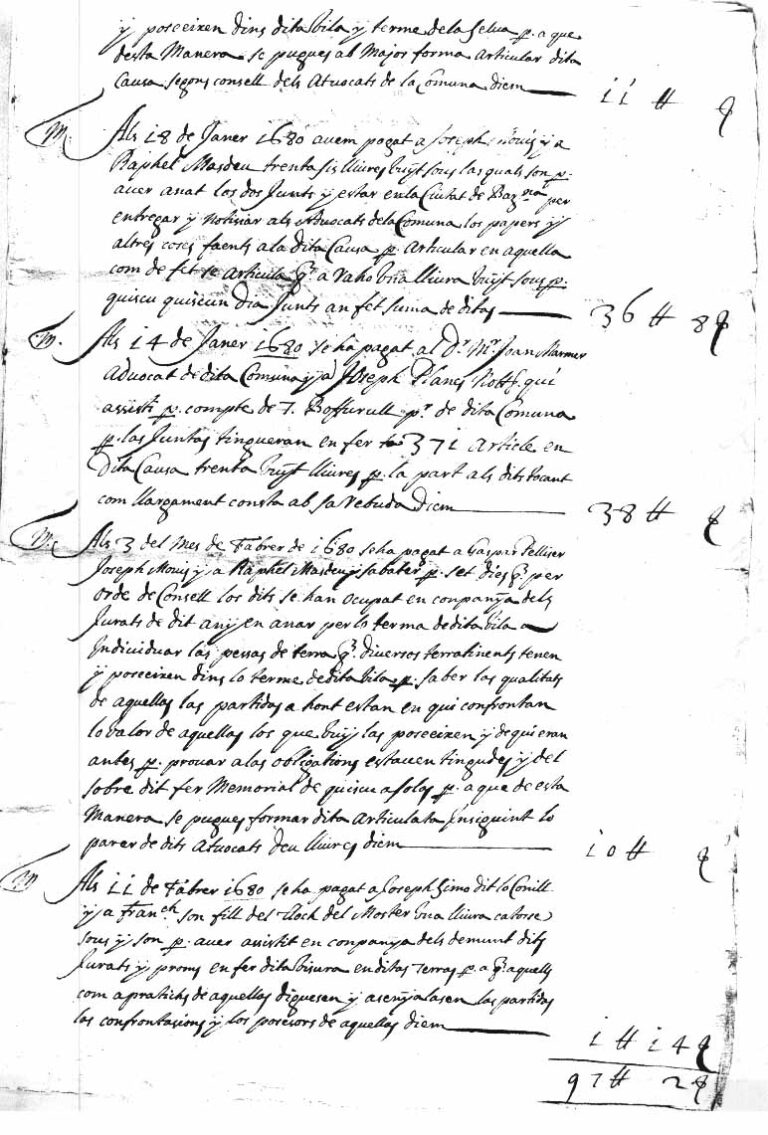 y poseeixen dins dita vila y terme de la Selva p. a que
desta Manera se pugues ab Major forma Articular dita
Causa segons consell dels Advocats de la Comuna diem 11 tt ҙ
M. Als 18 de Janer 1680 avem pagat a Joseph Novis y a
Raphel Masdeu trenta sis lliures vuyt sous las quals son p.
aver anat los dos Junts y estar en la Ciutat de Barna per
entregar y notisiar als Advocats de la Comuna los papers y
altres coses faents a la dita Causa p. Articular en aquella
com de fet se articula q. a raho una lliura vuyt sous p.
quiscu quiscun dia Junts an fet suma de ditas 36 tt 8
M. Als 14 de Janer 1680 se ha pagat al Dr. Mr. Joan Marmer
Advocat de dita Comuna y a Joseph Planes Nott. qui
assisti p. compte de J. Boffurull pr. de dita Comuna
p. las Juntas tingueran en fer 371 Article en
dita Causa trenta vuyt lliures p. la part als dits tocant
com llargament consta ab sa rebuda diem 38 tt
M. Als 3 del Mes de Fabrer de 1680 se ha pagat a Gaspar Pelliser
Joseph Novis y a Raphel Masdeu y sabater p. set dies q. per
orde de Consell los dits se han ocupat en conpanya dels
Jurats de dit any en anar per lo terma de dita vila a
Individuar las pessas de terra q. diversos terratinents tenen
y poseeixen dins lo terme de dita vila p. saber las qualitats
de aquellas las partidas a hont estan en qui confrontan
lo valor de aquellas los que vuy las poseeixen y de qui eran
antes p. provar a las obligations estaven tingudes y del
sobre dit fer Memorial de quiscu a solas p. a que de esta
Manera se pugues formar dita Articulata Insiguint lo
parer de dits Advocats deu lliures diem 10 tt
M. Als 11 de Fabrer 1680 se ha pagat a Joseph Simo dit lo Conill
y a Franch son fill del Lloch del Moster una lliura catorse
sous y son p. aver assistit en conpanya dels demunt dits
Jurats y proms en fer dita visura en ditas terras p. a q. aquells
com a pratichs de aquellas diguesen y asenyalasen las partidas
las confrontasions y los posesors de aquellas diem 1 tt 14
97 tt 2